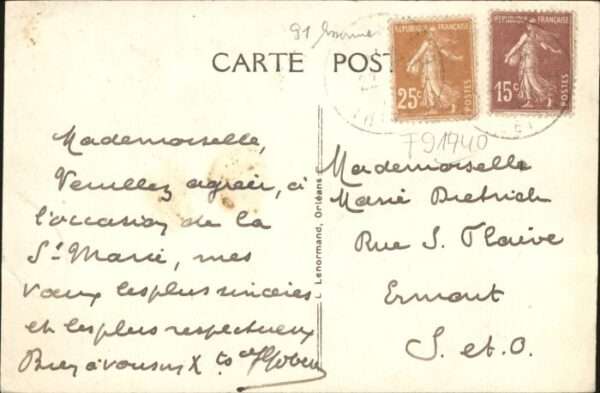 91 Essonne
CARTE POST
REPUBLIQUE FRANÇAISE
25c
POSTES
REPUBLIQUE FRANÇAISE
15c
POSTES
791940
Mademoiselle,
Veuillez agréer, à
l'occasion de la
St Marie, mes
vœux les plus sincères
et les plus respectueux
Bien à vous
L. Lenormand, Orléans
Mademoiselle
Marie Dietrich
Rue S. Flaive
Ermont
S. et O.